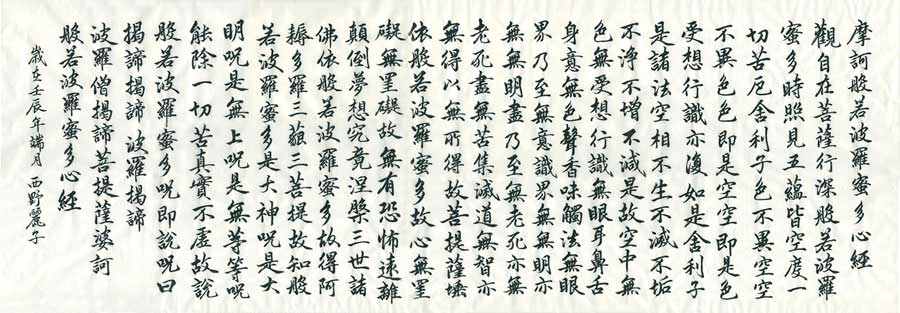 摩訶般若波羅蜜多心經
觀自在菩薩行深般若波羅
蜜多時照見五蘊皆空度一
切苦厄舍利子色不異空空
不異色色即是空空即是色
受想行識亦復如是舍利子
是諸法空相不生不滅不垢
不淨不增不減是故空中無
色無受想行識無眼耳鼻舌
身意無色聲香味觸法無眼
界乃至無意識界無無明亦
無無明盡乃至無老死亦無
老死盡無苦集滅道無智亦
無得以無所得故菩提薩埵
依般若波羅蜜多故心無罣
礙無罣礙故無有恐怖遠離
顛倒夢想究竟涅槃三世諸
佛依般若波羅蜜多故得阿
耨多羅三藐三菩提故知般
若波羅蜜多是大神呪是大
明呪是無上呪是無等等呪
能除一切苦真實不虛故說
般若波羅蜜多呪即說呪曰
揭諦揭諦 波羅揭諦
波羅僧揭諦菩提薩婆訶
般若波羅蜜多心經
歲在壬辰年端月 西野麗子